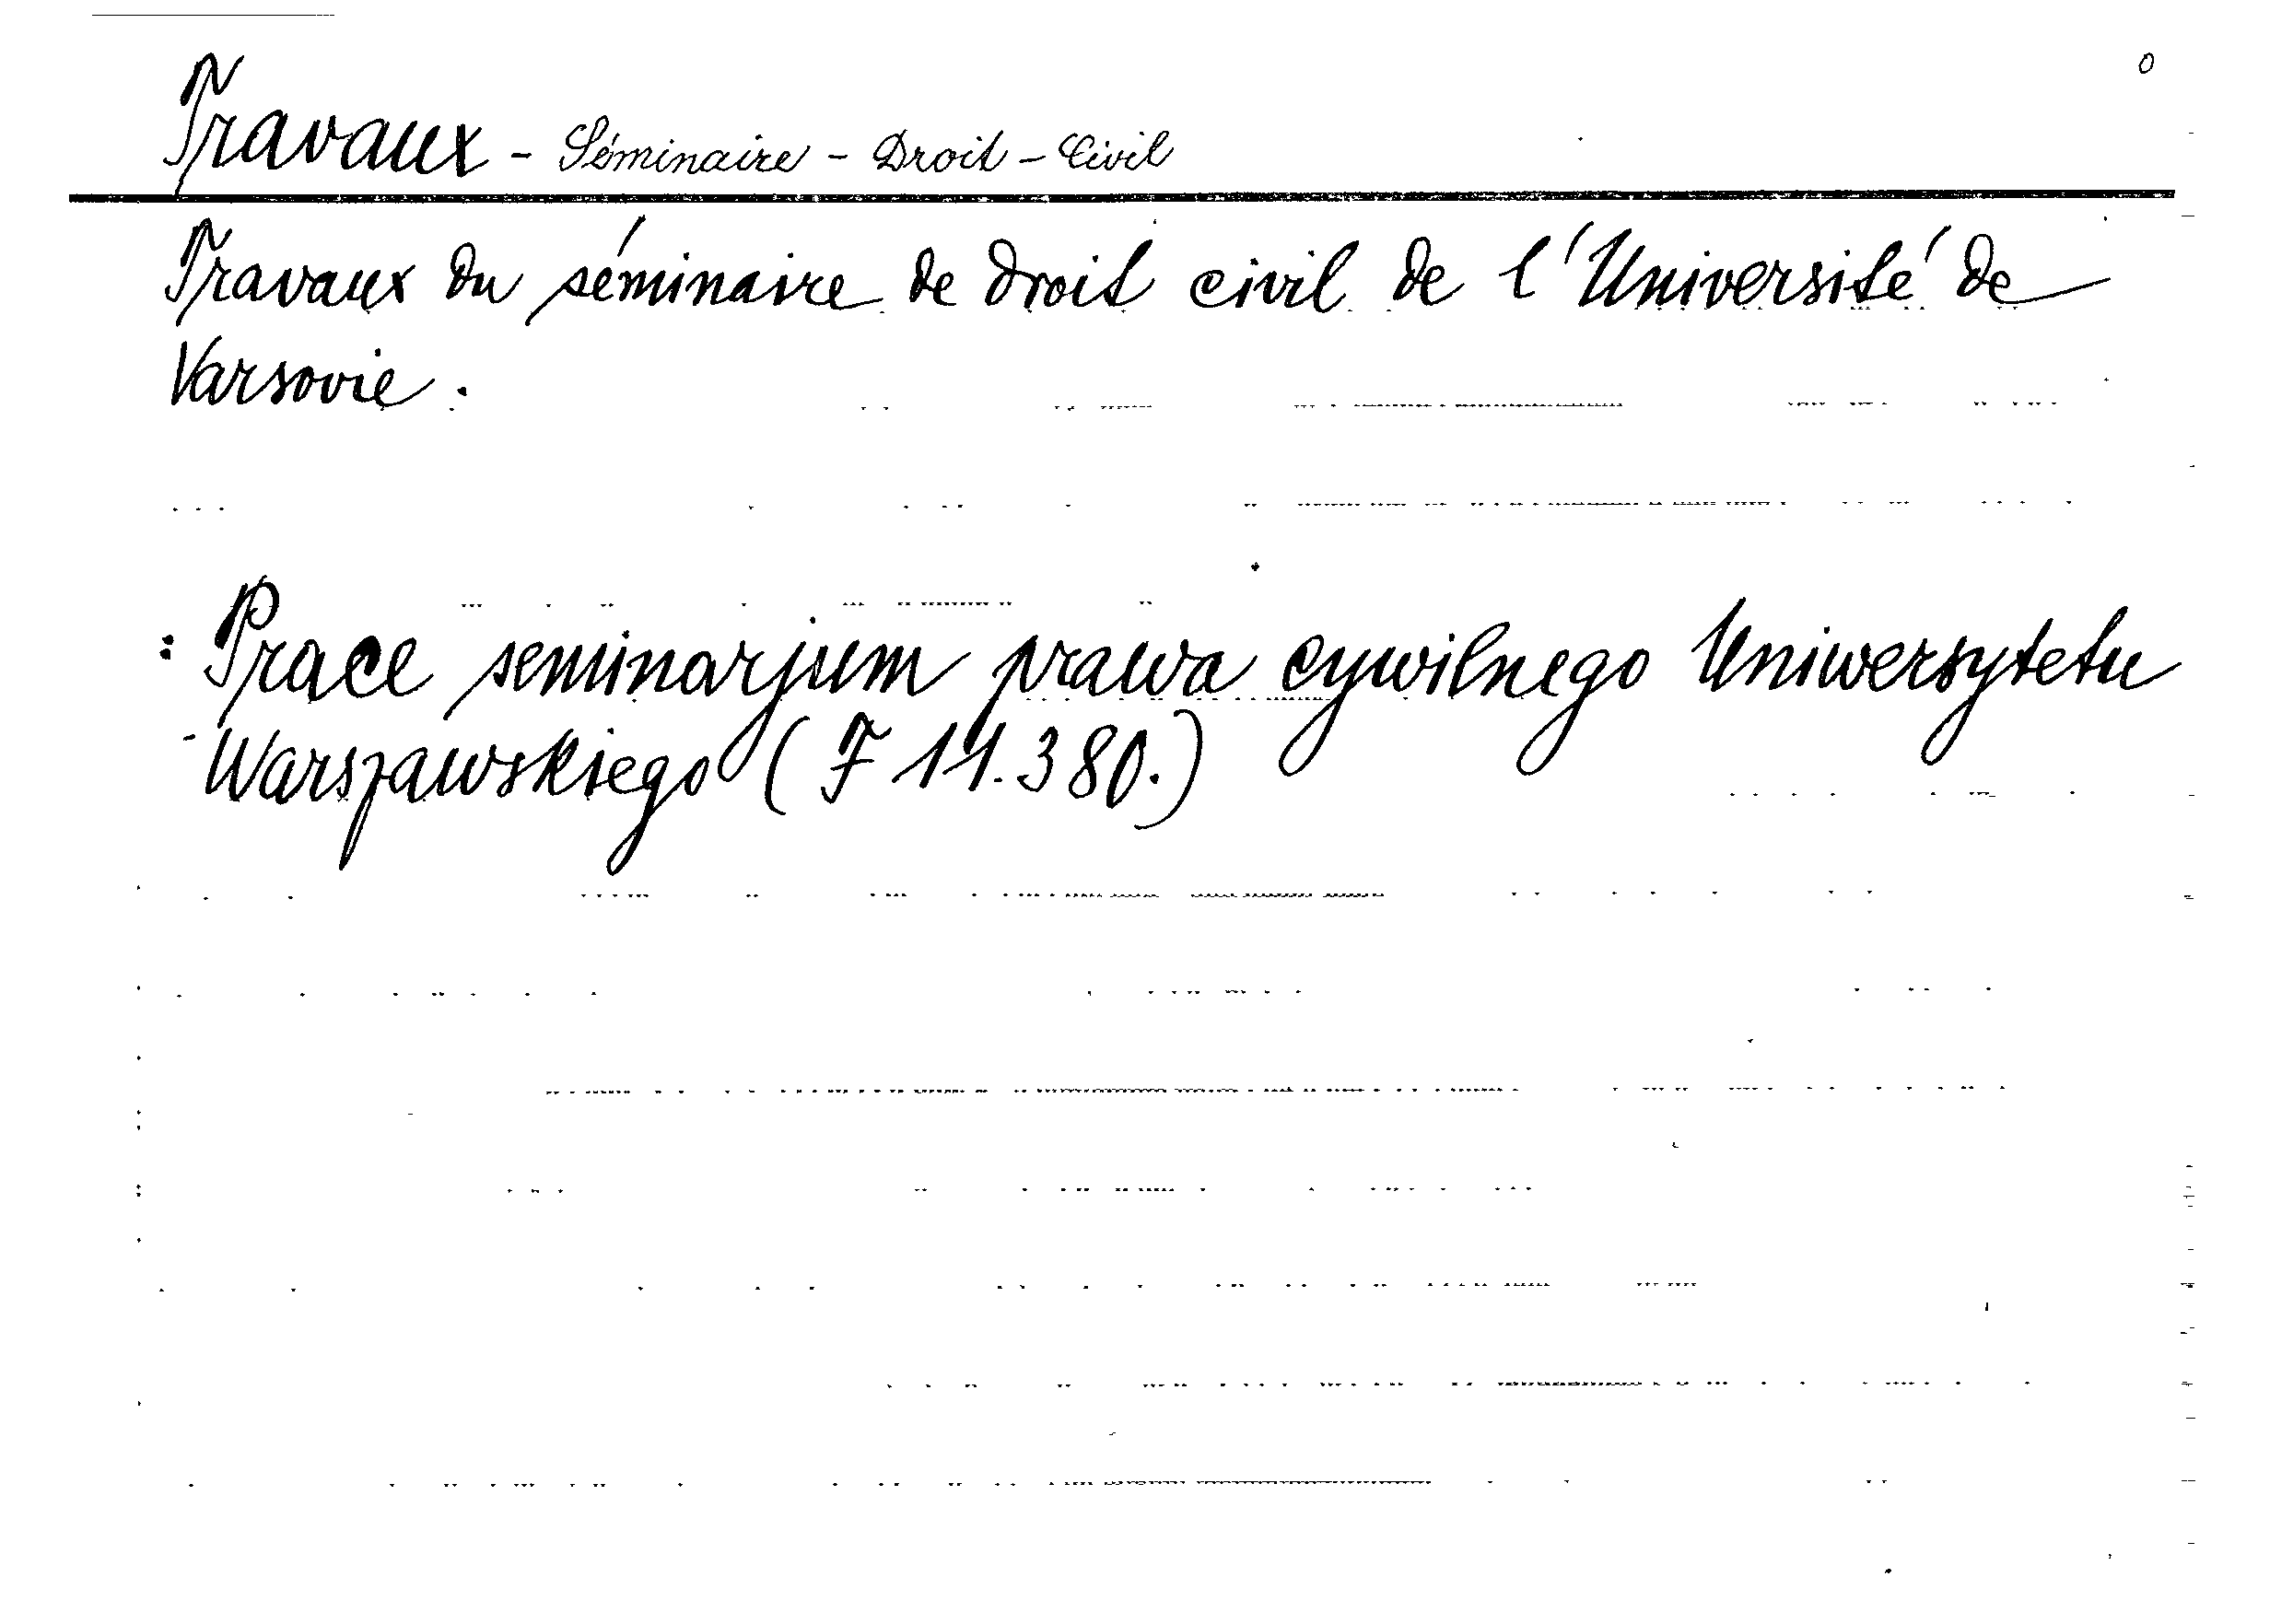 0
Travaux - Séminaire - Droit - Civil
Travaux du séminaire de droit civil de l'Université de
Varsovie.
: Prace seminarjum prawa cywilnego Uniwersytetu
Warszawskiego (F 11.380.)